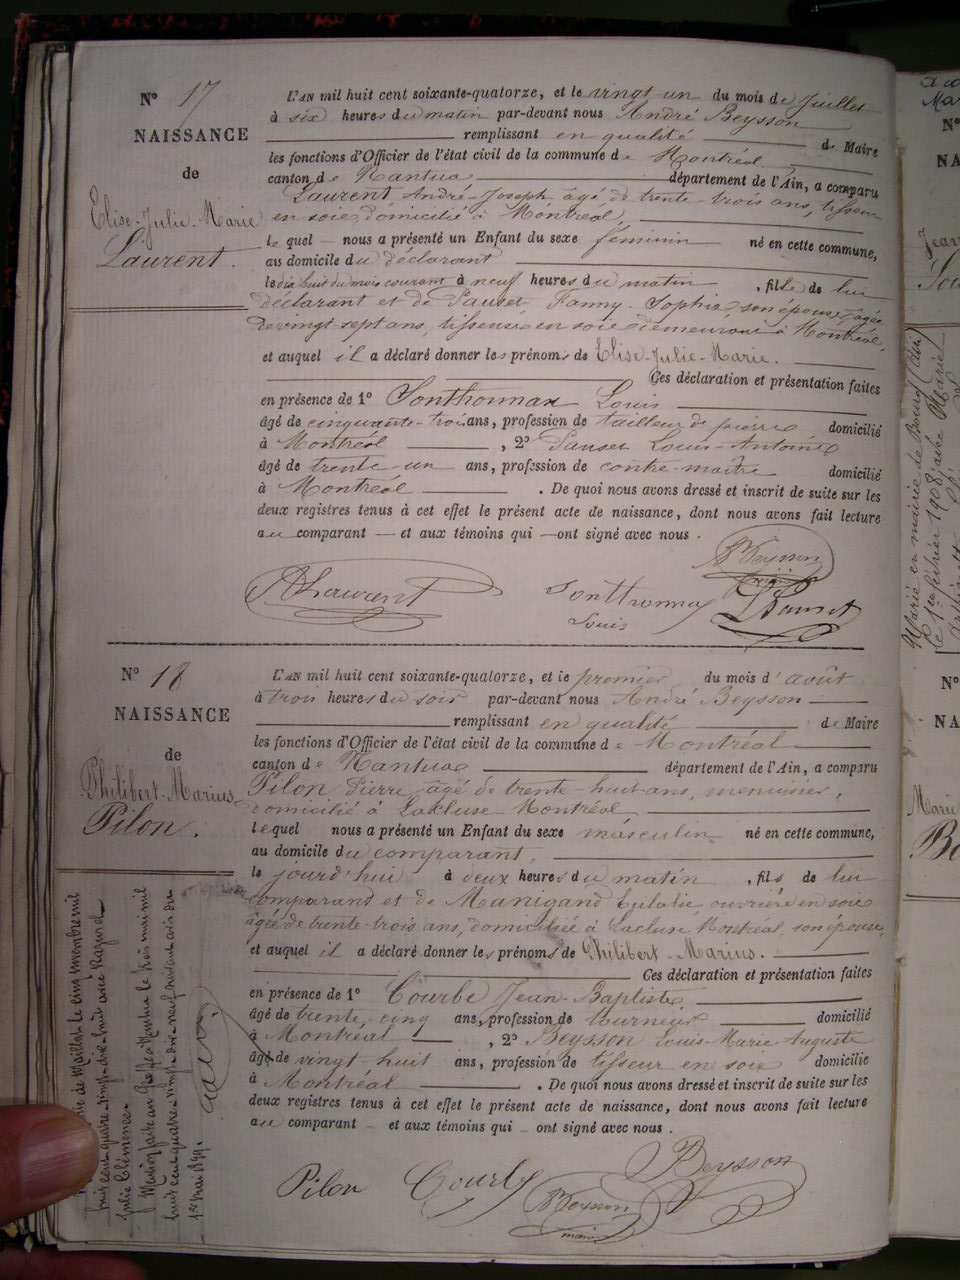 N° 17
NAISSANCE
de
Elise-Julie-Marie
Laurent.
L'AN mil huit cent soixante-quatorze, et le vingt un du mois de Juillet
à six heures du matin par-devant nous André Beysson
remplissant en qualité de Maire
les fonctions d'Officier de l'état civil de la commune de Montréal
canton de Nantua département de l'Ain, a comparu
Laurent André-Joseph, âgé de trente-trois ans, tisseur
en soie domicilié à Montréal,
lequel nous a présenté un Enfant du sexe féminin né en cette commune,
au domicile du déclarant
le dix huit du mois courant à neuf heures du matin, fille de lui
déclarant et de Pauset Fanny-Sophie, son épouse, âgée
de vingt sept ans, tisseuse en soie demeurant à Montréal,
et auquel il a déclaré donner les prénoms de Elise-Julie-Marie.
Ces déclaration et présentation faites
en présence de 1° Sonthonnax Louis
âgé de cinquante-trois ans, profession de tailleur de pierre domicilié
à Montréal, 2° Pauset Louis-Antoine
âgé de trente-un ans, profession de contre-maître domicilié
à Montréal. De quoi nous avons dressé et inscrit de suite sur les
deux registres tenus à cet effet le présent acte de naissance, dont nous avons fait lecture
au comparant et aux témoins qui ont signé avec nous.
Beysson
maire
Laurent
Sonthonnax
Louis
Pauset
N° 18
NAISSANCE
de
Philibert-Marius
Pilon.
L'AN mil huit cent soixante-quatorze, et le premier du mois d'août
à trois heures du soir par-devant nous André Beysson
remplissant en qualité de Maire
les fonctions d'Officier de l'état civil de la commune de Montréal
canton de Nantua département de l'Ain, a comparu
Pilon Pierre, âgé de trente-huit ans, menuisier,
domicilié à Lacluse-Montréal
lequel nous a présenté un Enfant du sexe masculin né en cette commune,
au domicile du comparant,
le jourd'hui à deux heures du matin, fils de lui
comparand et de Munigand Eulalie ouvrière en soie
âgée de trente-trois ans, domiciliée à Lacluse Montréal, son épouse,
et auquel il a déclaré donner les prénoms de Philibert-Marius.
Ces déclaration et présentation faites
en présence de 1° Courbe Jean-Baptiste
âgé de trente, cinq ans, profession de tourneur domicilié
à Montréal, 2° Beysson Louis-Marie-Auguste
âgé de vingt-huit ans, profession de tisseur en soie domicilié
à Montréal. De quoi nous avons dressé et inscrit de suite sur les
deux registres tenus à cet effet le présent acte de naissance, dont nous avons fait lecture
au comparant et aux témoins qui ont signé avec nous.
Pilon Courbe Beysson
Beysson
maire
de Maillat le cinq
huit cent quatre-vingt-dix-huit avec
Julie Clémence.
Mention faite au Greffe de Nantua le trois mai mil
huit cent quatre-vingt-dix-neuf suivant avis du
1er mai 1899.
Marié en mairie de Bourg (Ain)
le 1er février 1908, avec Marie
N°
Jean
N°
Marie